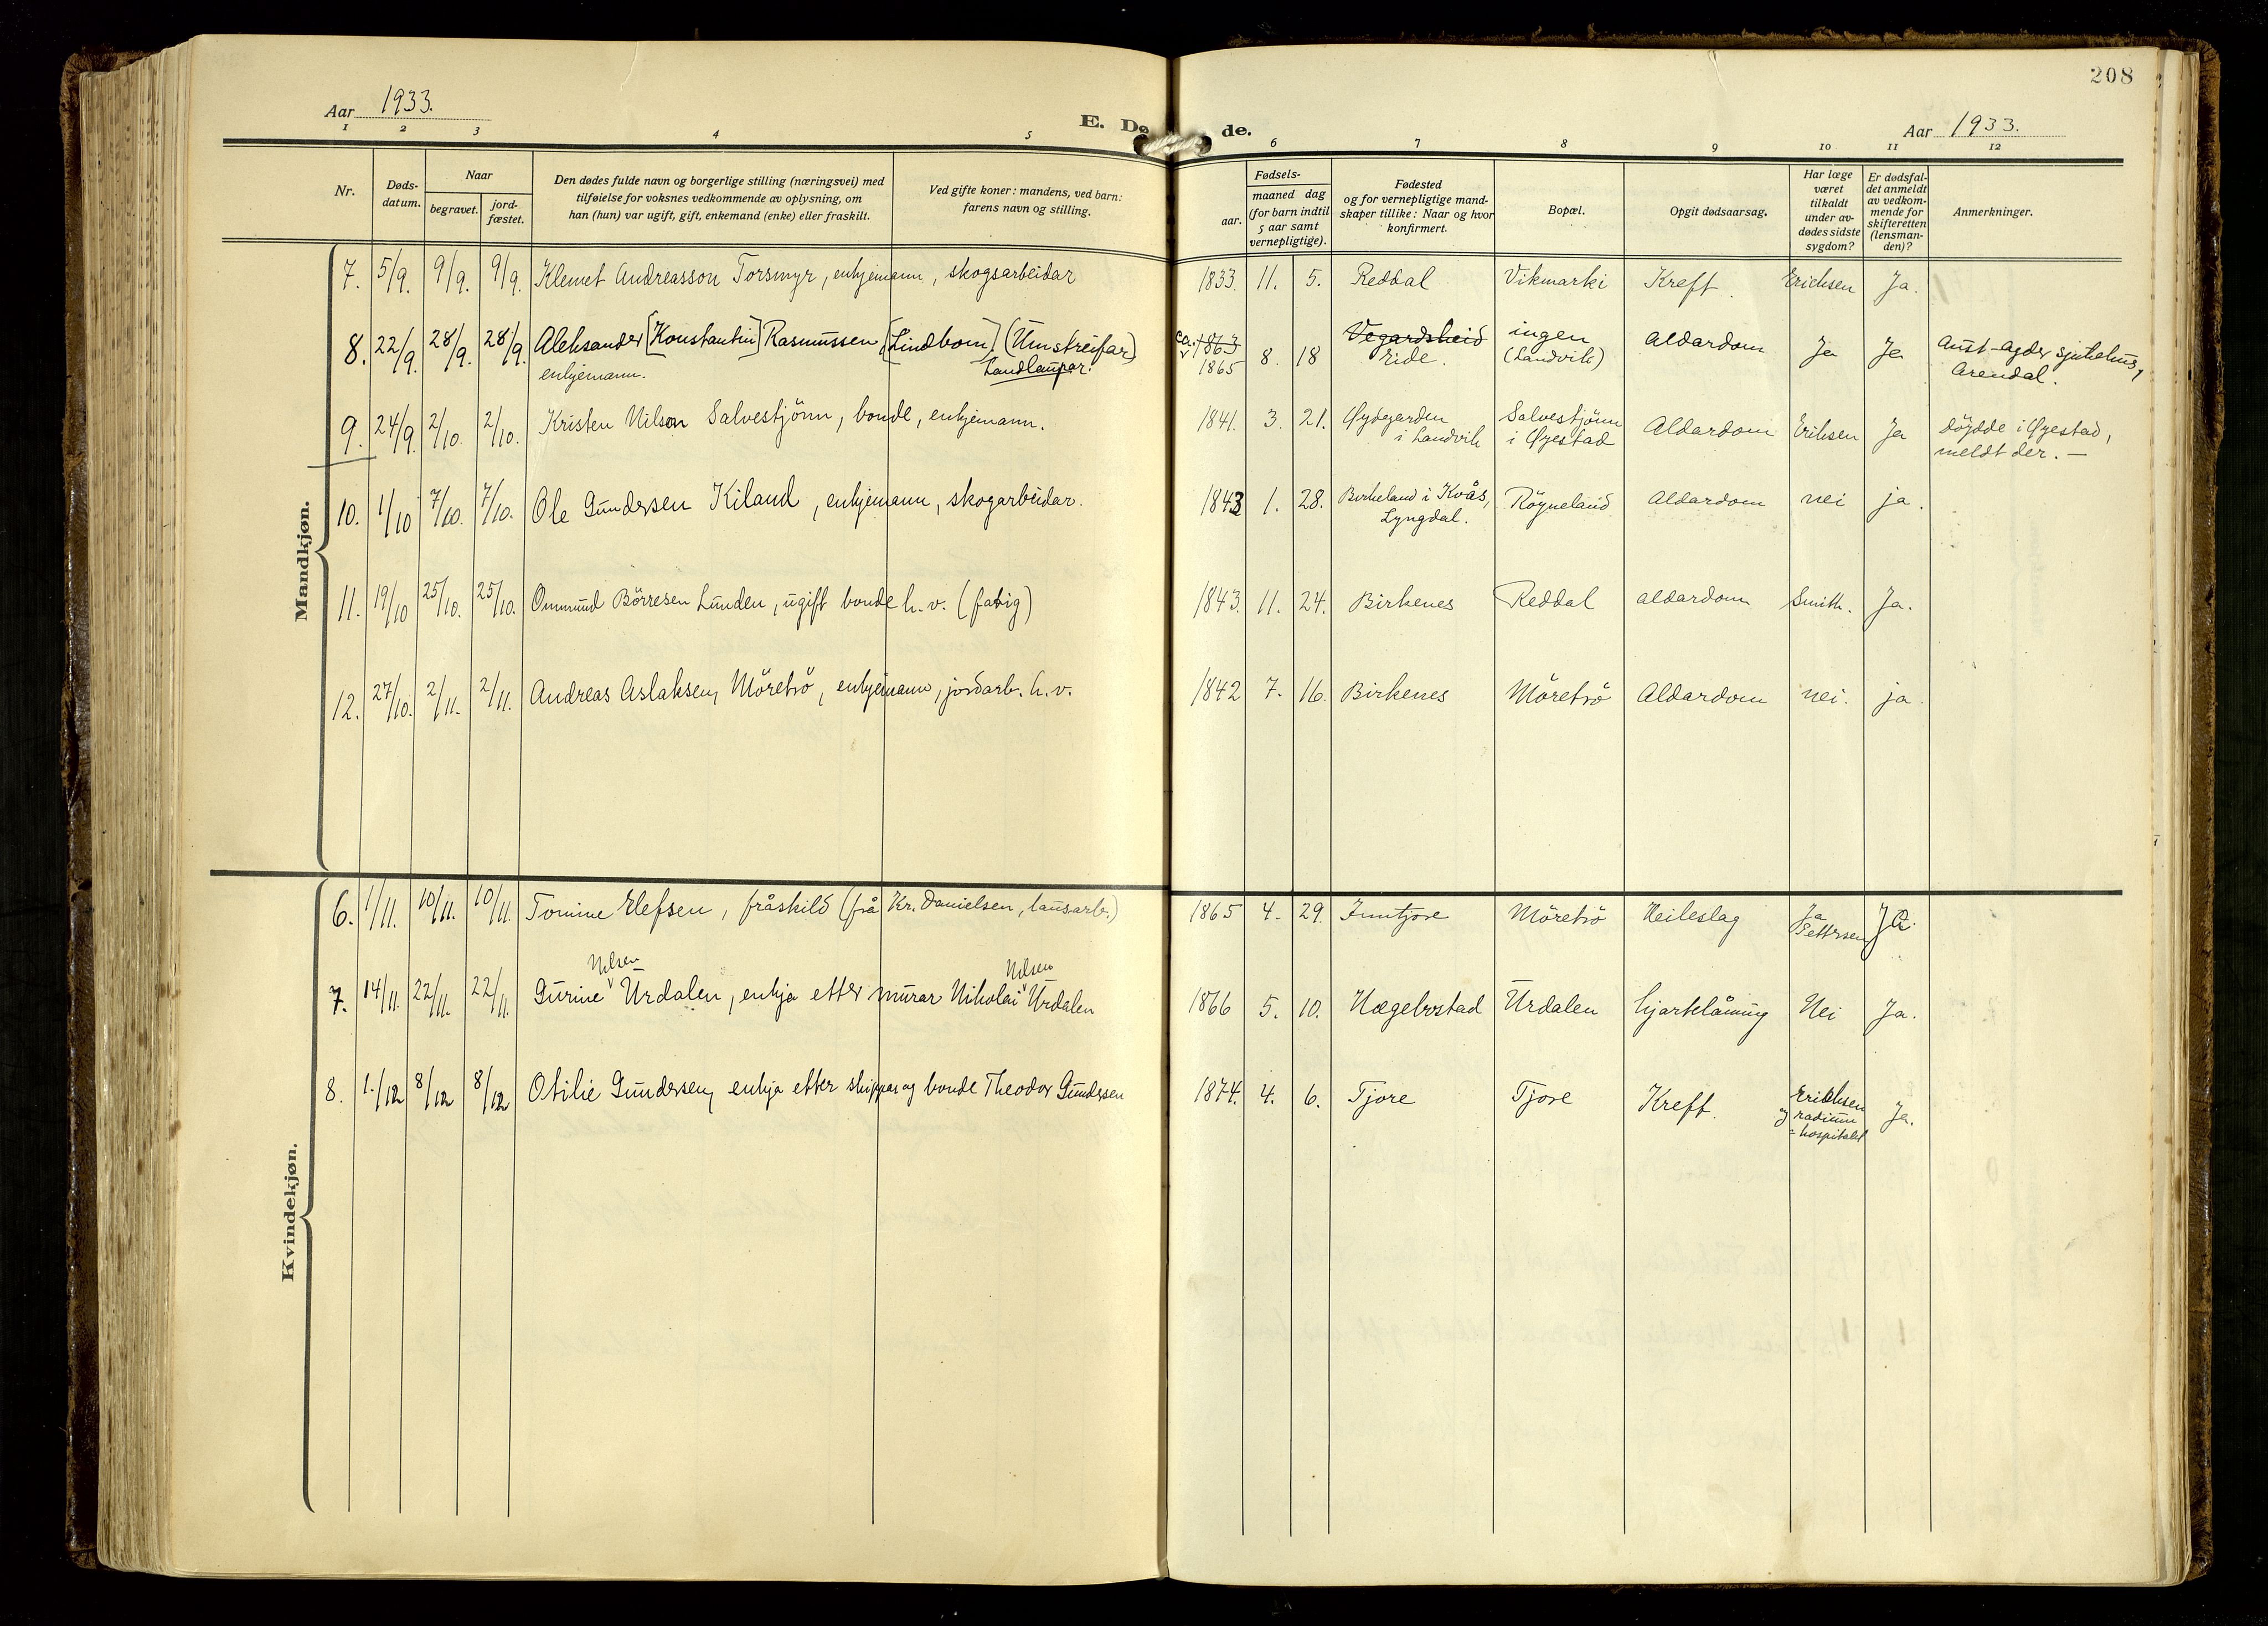 208
Aar 1933.
E. Dø de.
Aar 1933.
1 2 3 4 5 6 7 8 9 10 11 12
Nr.
Døds-
datum.
Naar
begravet.
jord-
fæstet.
Den dødes fulde navn og borgerlige stilling (næringsvei) med
tilføielse for voksnes vedkommende av oplysning, om
han (hun) var ugift, gift, enkemand (enke) eller fraskilt.
Ved gifte koner: mandens, ved barn:
farens navn og stilling.
Fødsels-
aar.
maaned dag
(for barn indtil
5 aar samt
vernepligtige).
Fødested
og for vernepligtige mand-
skaper tillike: Naar og hvor
konfirmert.
Bopæl.
Opgit dødsaarsag.
Har læge
været
tilkaldt
under av-
dødes sidste
sygdom?
Er dødsfal-
det anmeldt
av vedkom-
mende for
skifteretten
(lensman-
den)?
Anmerkninger.
Mandkjøn.
7. 5/9. 9/9. 9/9. Klemet Andreasson Torsmyr, enkjemann, skogsarbeidar 1833. 11. 5. Reddal Vikmarki Kreft. Erichsen Ja.
8. 22/9. 28/9. 28/9. Aleksander [Konstantin] Rasmussen, [Lindbom] (Umstreifar) ca. 1863 8. 18 Vegardsheid ingen Aldardom Ja Ja Aust-Agder sjukehus,
enkjemann. Landlaupar. 1865 Eide. (Landvik) Arendal.
9. 24/9. 2/10. 2/10. Kristen Nilson Salvestjönn, bonde, enkjemann. 1841. 3. 21. Øydegarden Salvestjönn Aldardom Eriksen Ja döydde i Øyestad,
i Landvik i Øyestad meldt der. —
10. 1/10 7/10. 7/10. Ole Gundersen Kiland, enkjemann, skogarbeidar. 1843 1. 28. Birkeland i Kvås, Rögneland Aldardom nei ja.
Lyngdal.
11. 19/10 25/10. 25/10. Ommund Börresen Lunden, ugift bonde h. v. (fatig) 1843. 11. 24. Birkenes Reddal aldardom Smith. Ja.
12. 27/10. 2/11. 2/11. Andreas Aslaksen, Möretrö, enkjemann, jordarb. h. v. 1842 7. 16. Birkenes Möretrö Aldardom nei. ja.
Kvindekjøn.
6. 1/11. 10/11. 10/11. Tomine Elefsen, fråskild (frå Kr. Danielsen, lausarb.) 1865 4. 29. Inntjore Möretrö Heileslag Ja Ja.
Nilsen Nilsen
7. 14/11. 22/11. 22/11. Gurine Urdalen, enkja etter murar Nikolai Urdalen 1866 5. 10. Hægebostad Urdalen hjartelåming Nei Ja.
8. 1./12 8/12 8/12 Otilie Gundersen, enkja etter skippar og bonde Theodor Gundersen 1874. 4. 6. Tjore Tjore Kreft. Erichsen Ja.
og radium
= hospitalet